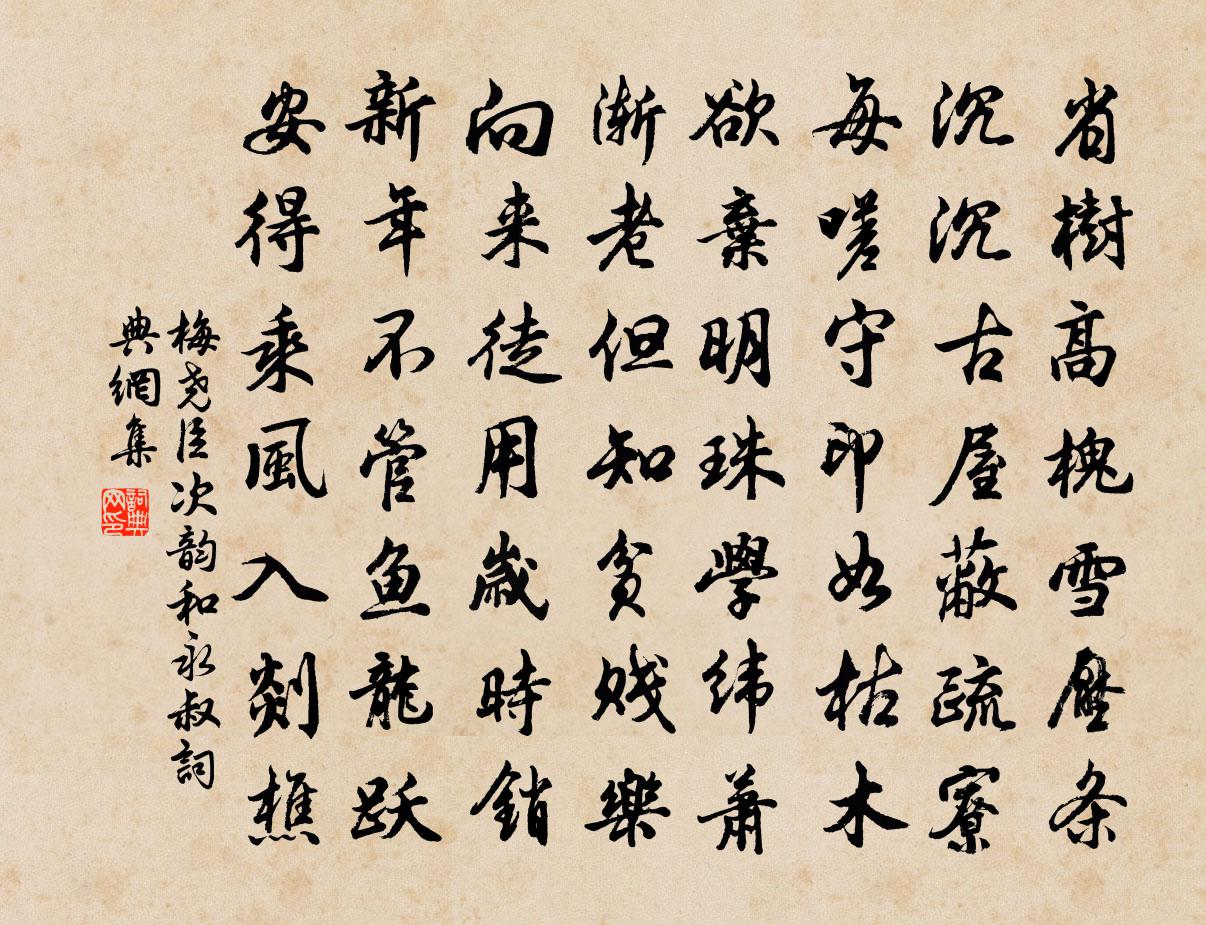 省樹高槐雪壓条
沉沉古屋蔽疏寮
每嗟守印如枯木
欲棄明珠學緯蕭
漸老但知貧賤樂
向来徒用歲時銷
新年不管魚龍跃
安得乘風入剡樵
梅尧臣次韵和永叔詞
典網集
詞典网印